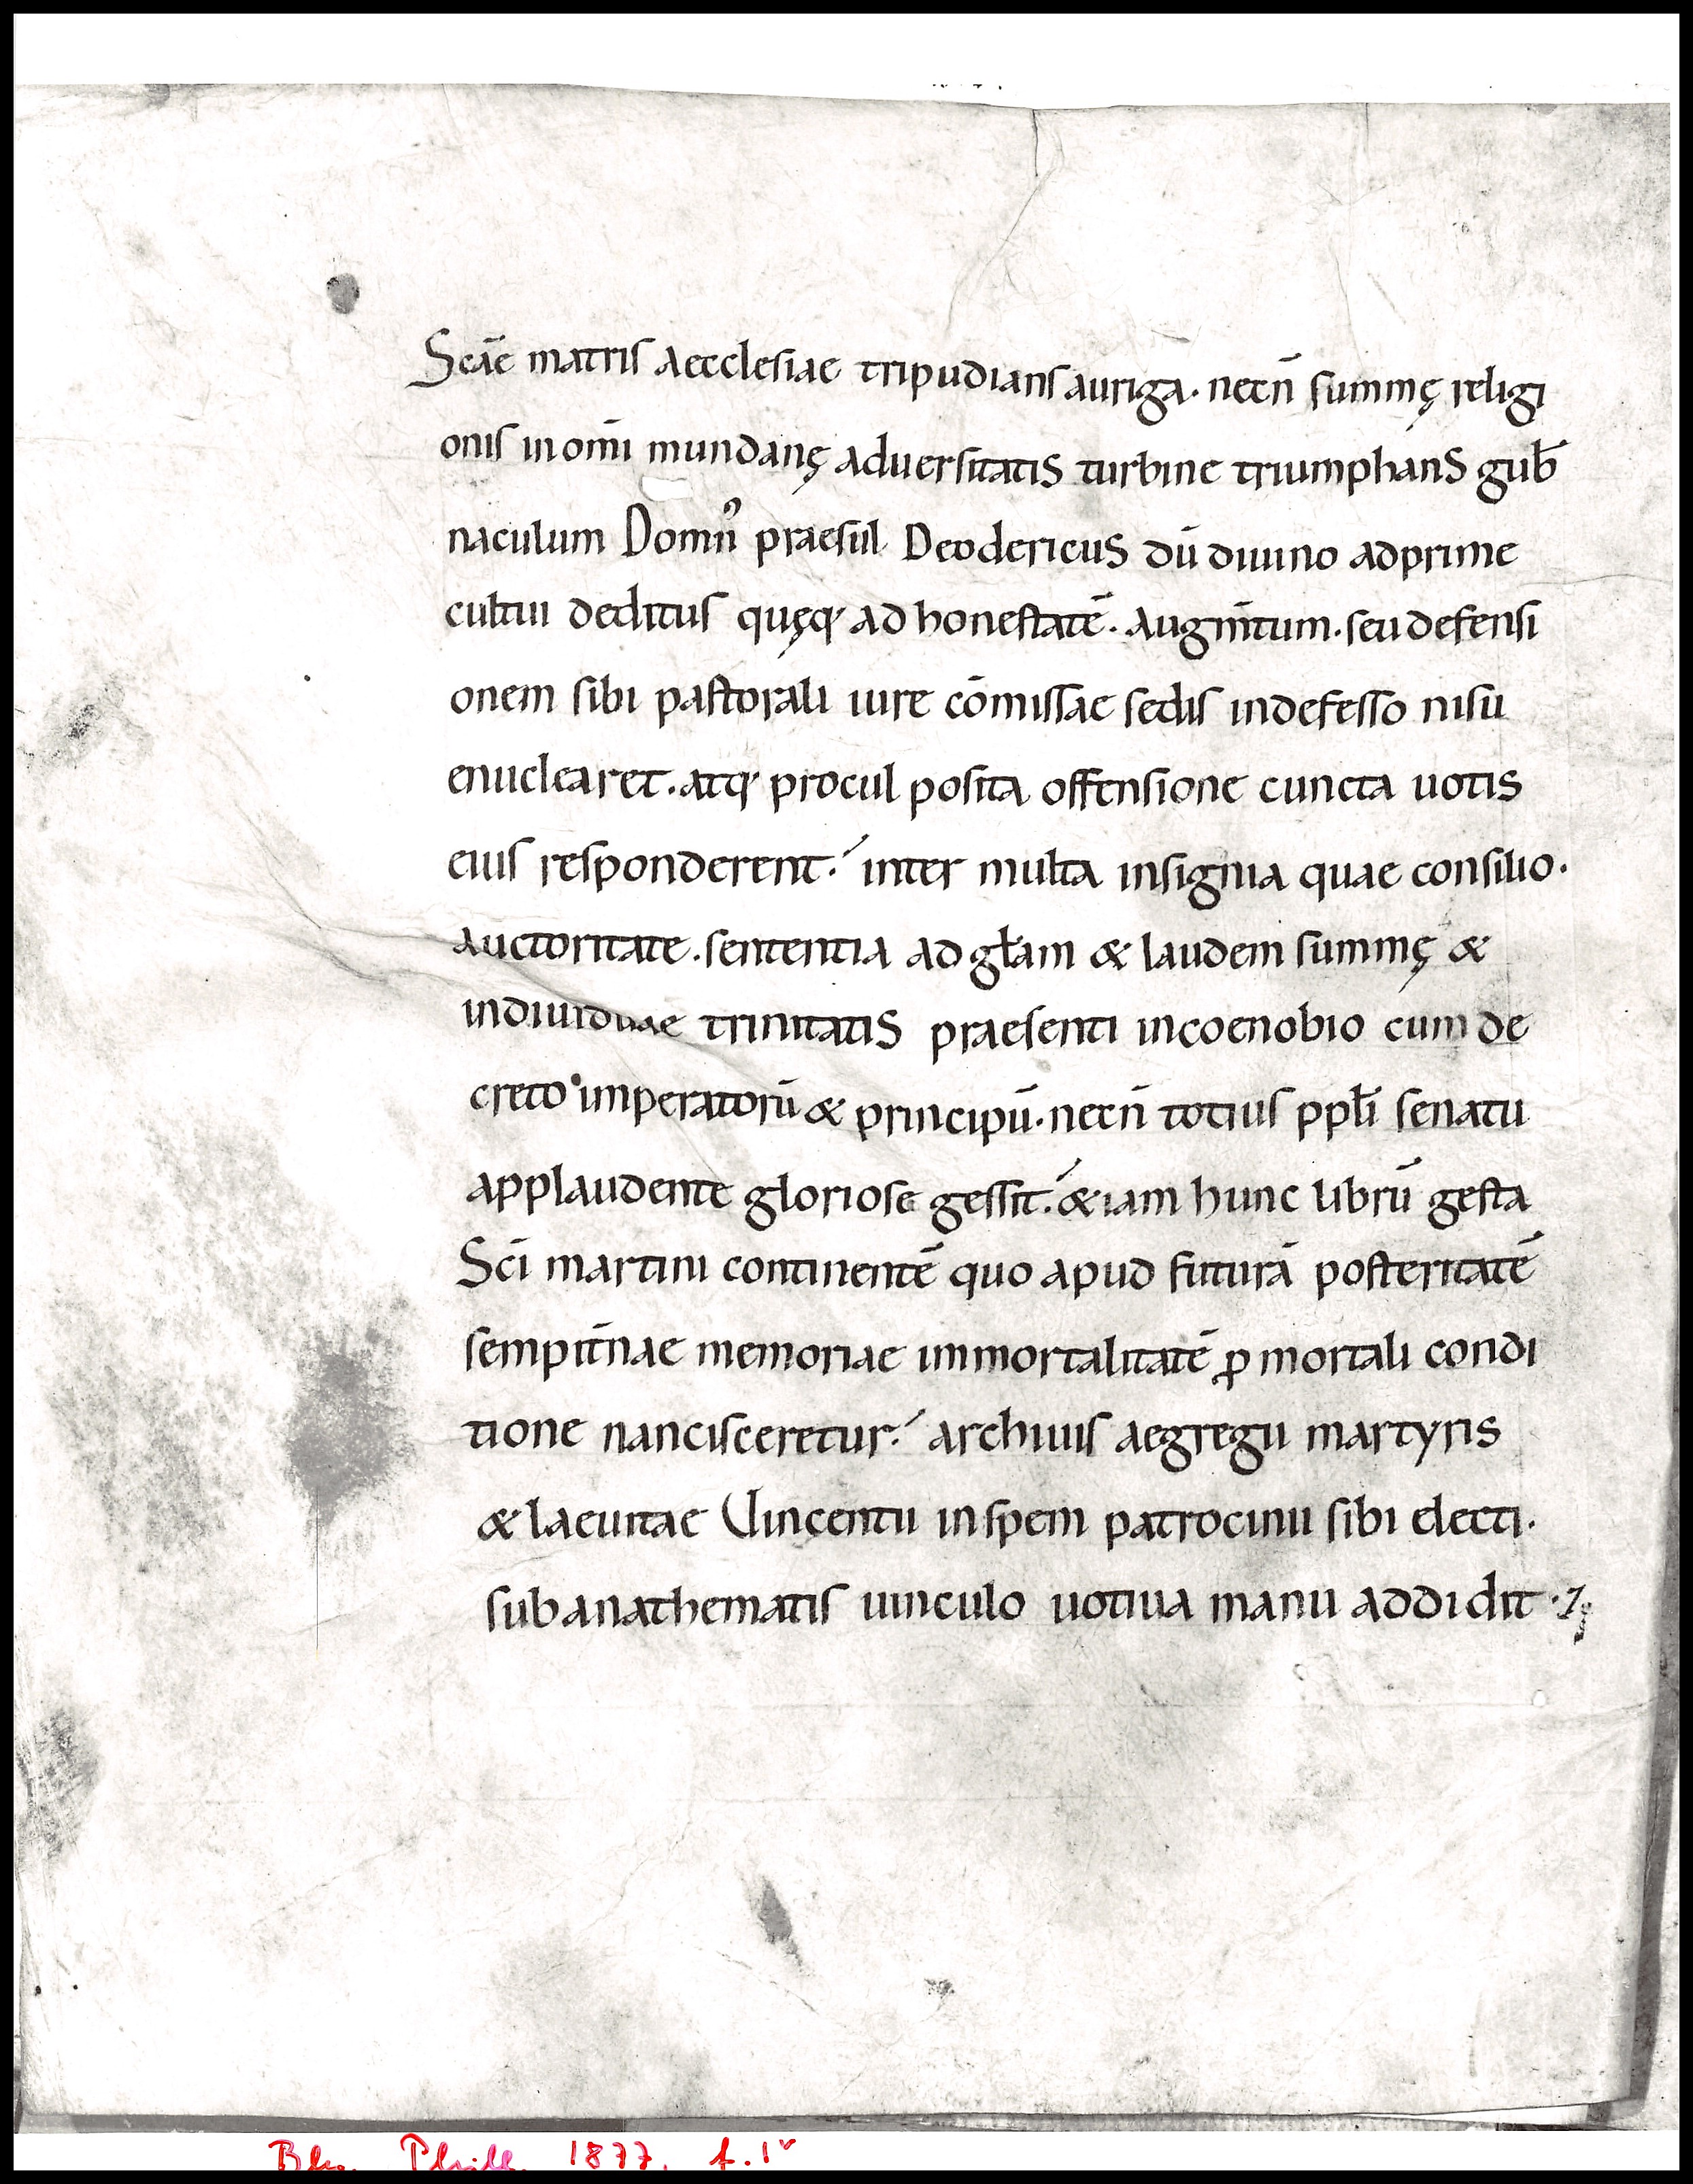 Scāe matris aecclesiae tripudians auriga. necn̄ summę religi
onis in om̄i mundanę aduersitatis turbine triumphans gub̄
naculum Domn᾽ praesul Deodericus dū diuino adprime
cultui deditus quęq; ad honestatē. augm̄tum. seu defensi
onem sibi pastorali iure cōmissae sedis indefesso nisu
enuclearet. atq; procul posita offensione cuncta uotis
eius responderent. inter multa insignia quae consilio.
auctoritate. sententia ad gl̄am & laudem summę &
indiuiduae trinitatis praesenti in coenobio cum de
creto imperatorū & principū. necn̄ totius ppl̄i senatu
applaudente gloriose gessit. &iam hunc librū gesta
Sc̄i martini continentē quo apud futurā posteritatē
sempit̄nae memoriae immortalitatē ꝓ mortali condi
tione nancisceretur. archiuis aegregii martyris
& laeuitae Uincentii in spem patrocinii sibi electi.
sub anathematis uinculo uotiua manu addidit.
Bln. Phill. 1877. f. 1v